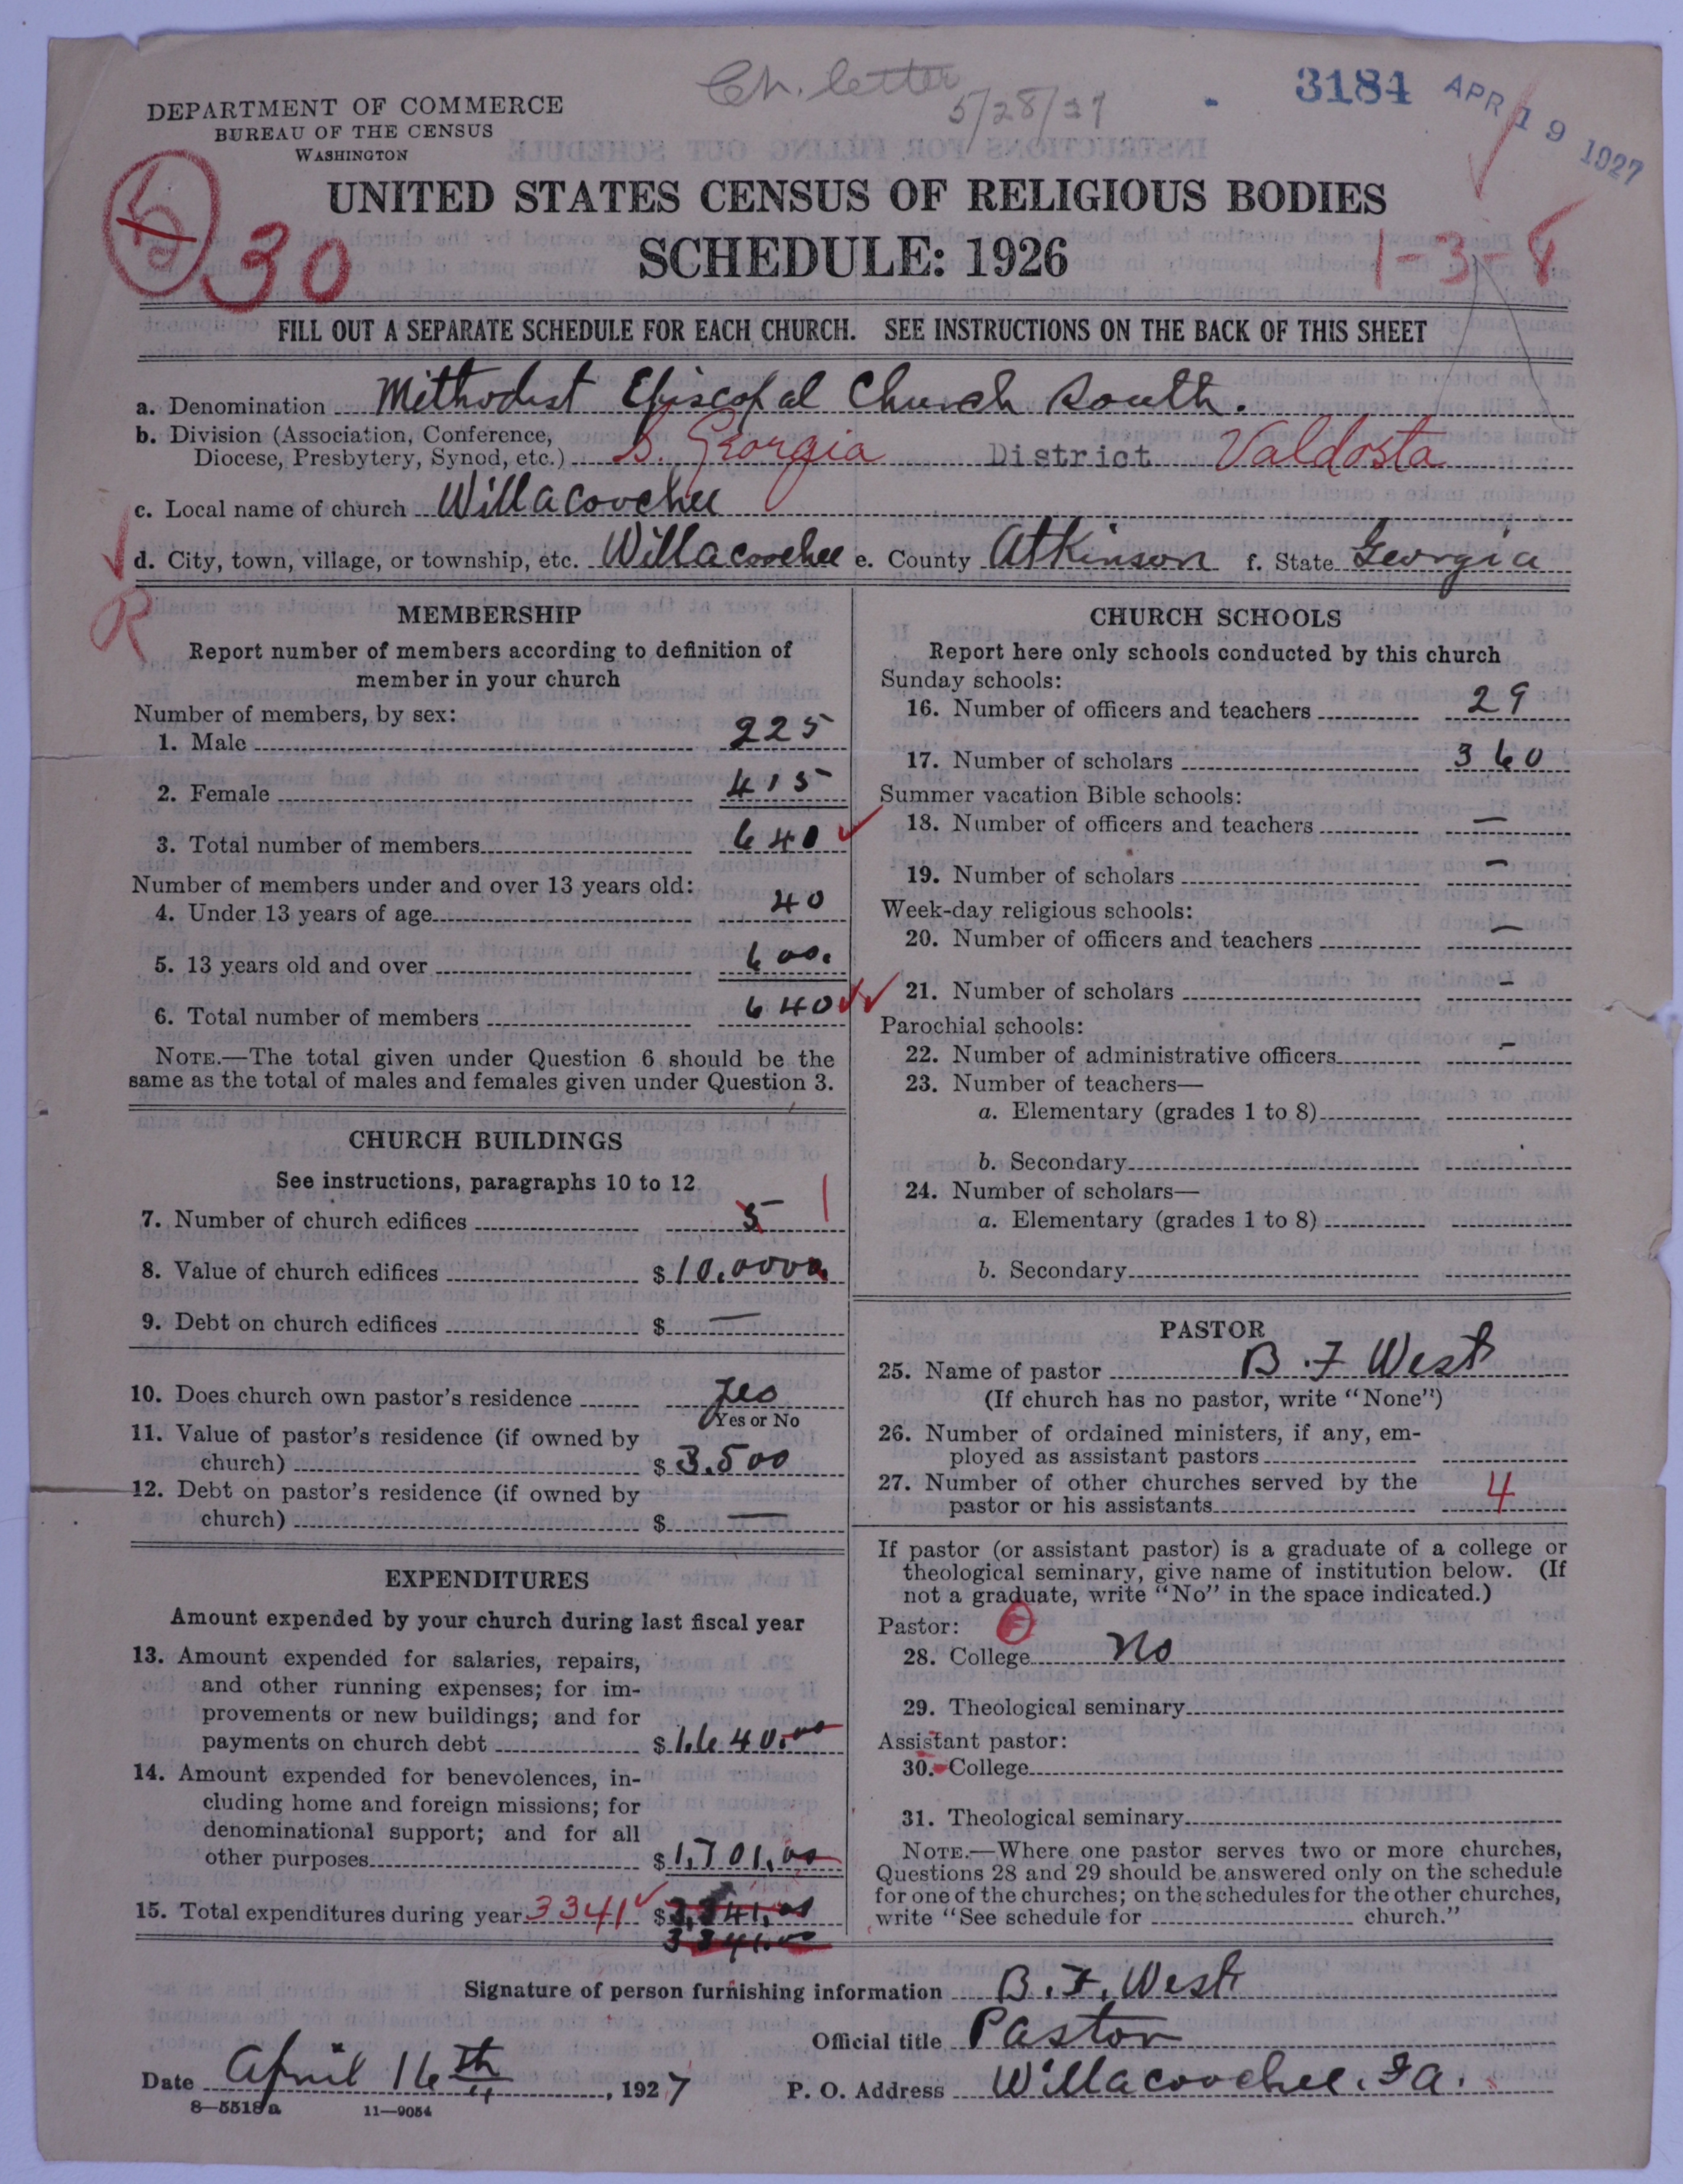 Ch. letter
5/28/27
3184
APR 19 1927
DEPARTMENT OF COMMERCE
BUREAU OF THE CENSUS
WASHINGTON
UNITED STATES CENSUS OF RELIGIOUS BODIES
30
SCHEDULE: 1926
1-3-8
FILL OUT A SEPARATE SCHEDULE FOR EACH CHURCH. SEE INSTRUCTIONS ON THE BACK OF THIS SHEET
a. Denomination Methodist Episcopal Church South.
b. Division (Association, Conference,
Diocese, Presbytery, Synod, etc.) S. Georgia District Valdosta
c. Local name of church Willacoochee
d. City, town, village, or township, etc. Willacoochee e. County Atkinson f. State Georgia
R
MEMBERSHIP
Report number of members according to definition of
member in your church
Number of members, by sex:
1. Male 225
2. Female 415
3. Total number of members 640
Number of members under and over 13 years old:
4. Under 13 years of age 40
5. 13 years old and over 600.
6. Total number of members 640
NOTE.—The total given under Question 6 should be the
same as the total of males and females given under Question 3.
CHURCH BUILDINGS
See instructions, paragraphs 10 to 12
7. Number of church edifices 5 1
8. Value of church edifices $10,000
9. Debt on church edifices $ —
10. Does church own pastor's residence Yes
Yes or No
11. Value of pastor's residence (if owned by
church) $3,500
12. Debt on pastor's residence (if owned by
church) $ —
EXPENDITURES
Amount expended by your church during last fiscal year
13. Amount expended for salaries, repairs,
and other running expenses; for im-
provements or new buildings; and for
payments on church debt $1,640.00
14. Amount expended for benevolences, in-
cluding home and foreign missions; for
denominational support; and for all
other purposes $1,701.00
15. Total expenditures during year 3341 $3,341.00
3341.00
CHURCH SCHOOLS
Report here only schools conducted by this church
Sunday schools:
16. Number of officers and teachers 29
17. Number of scholars 360
Summer vacation Bible schools:
18. Number of officers and teachers —
19. Number of scholars —
Week-day religious schools:
20. Number of officers and teachers —
21. Number of scholars —
Parochial schools:
22. Number of administrative officers —
23. Number of teachers—
a. Elementary (grades 1 to 8)
b. Secondary
24. Number of scholars—
a. Elementary (grades 1 to 8)
b. Secondary
PASTOR
25. Name of pastor B. F West
(If church has no pastor, write "None")
26. Number of ordained ministers, if any, em-
ployed as assistant pastors
27. Number of other churches served by the
pastor or his assistants 4
If pastor (or assistant pastor) is a graduate of a college or
theological seminary, give name of institution below. (If
not a graduate, write "No" in the space indicated.)
Pastor:
28. College No
29. Theological seminary
Assistant pastor:
30. College
31. Theological seminary
NOTE.—Where one pastor serves two or more churches,
Questions 28 and 29 should be answered only on the schedule
for one of the churches; on the schedules for the other churches,
write "See schedule for church."
Signature of person furnishing information B. F. West
Official title Pastor
Date April 16th, 1927 P. O. Address Willacoochee, Ga.
8—5518a 11—9054